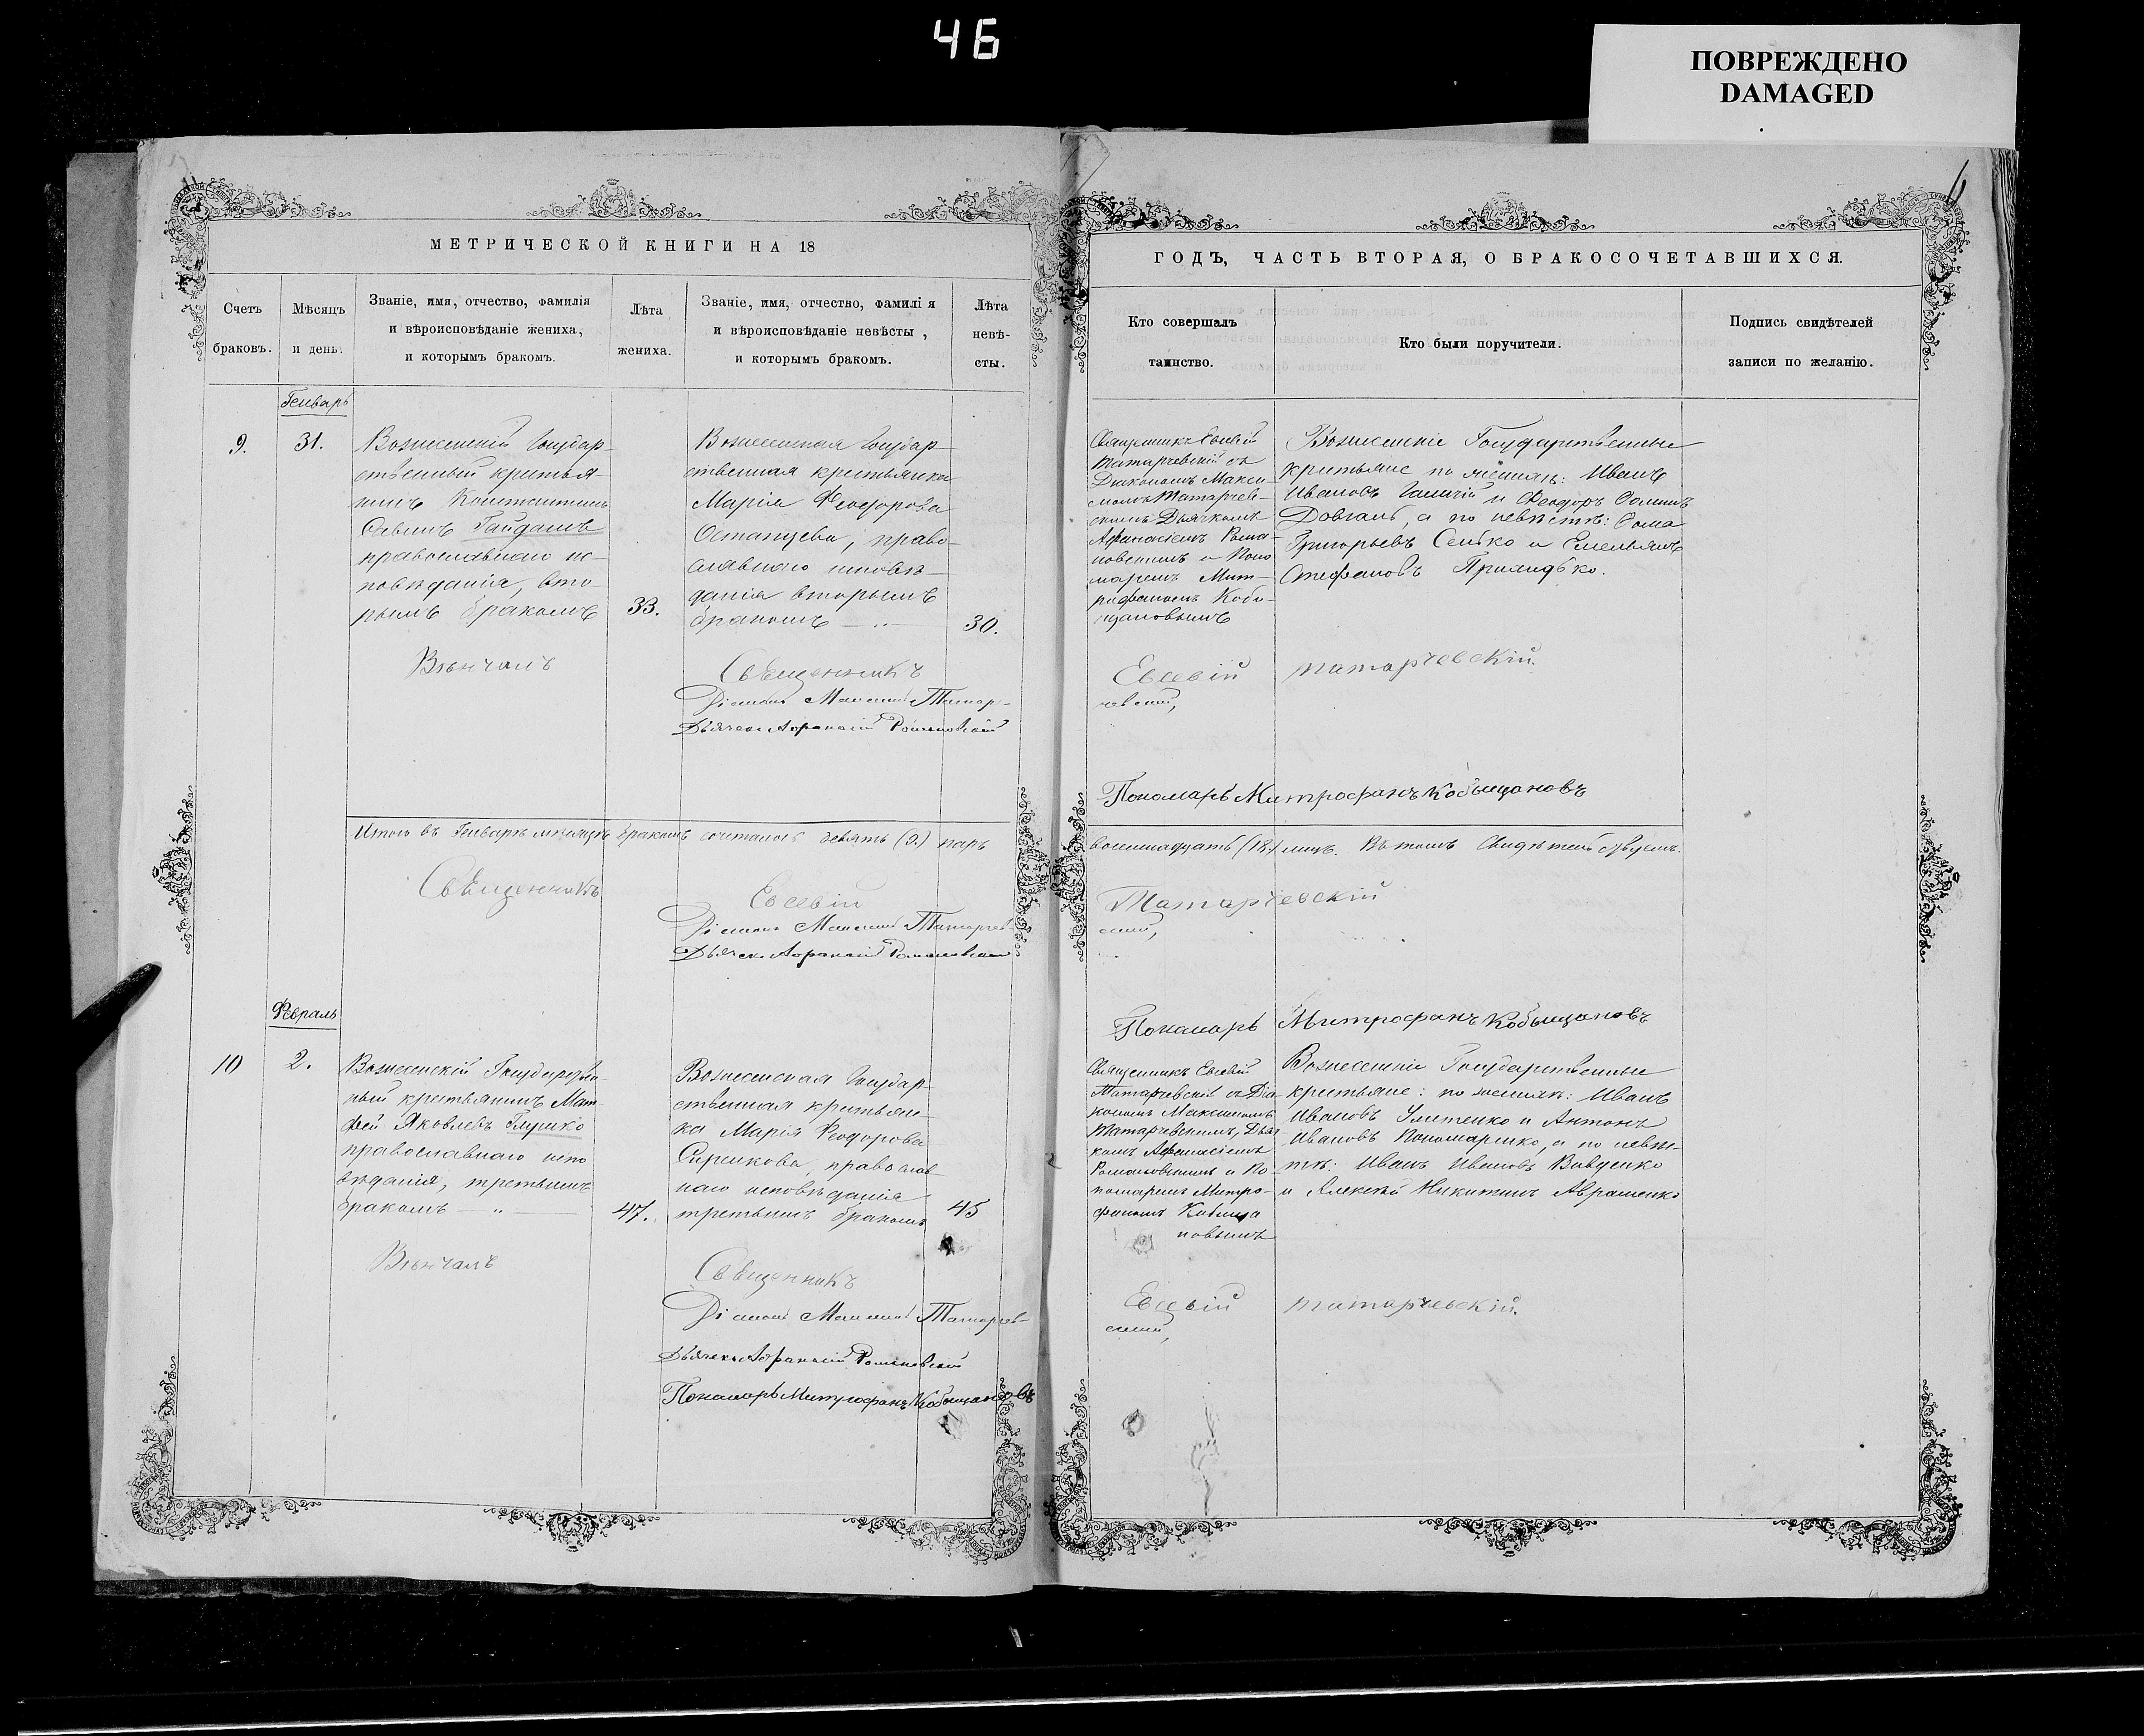 46
ПОВРЕЖДЕНО
DAMAGED
МЕТРИЧЕСКОЙ КНИГИ НА 18
Счетъ браковъ.
Мѣсяцъ и день.
Званіе, имя, отчество, фамилія
и вѣроисповѣданіе жениха,
и которымъ бракомъ.
Лѣта жениха.
Званіе, имя, отчество, фамилія
и вѣроисповѣданіе невѣсты,
и которымъ бракомъ.
Лѣта невѣ-
сты.
Генварь
9.
31.
Вознесенскій Государ-
ственный кресткья-
нинъ Константинъ
Саввинъ Гайданъ
православнаго ис-
повѣданія, вто-
рымъ бракомъ
33.
Вознесенская Государ-
ственная крестьянка
Марія Феодорова
Остапцева, право-
славнаго исповѣ-
данія вторымъ
бракомъ
30.
Вѣнчалъ
Священникъ
Діаконъ Максимъ Татар-
Дьячекъ Афанасій Романовскій
Итого въ Генварѣ мѣсяцѣ бракомъ сочеталось девять (9.) паръ
Священникъ
Евсевій
Діаконъ Максимъ Татарчев-
Дьячек. Афанасій Романовскій
Февраль
10
2.
Вознесенскій Государствен-
ный крестьянинъ Мат-
фей Яковлевъ Глушко
православнаго испо
вѣданія, третьимъ
бракомъ
47.
Вознесенская Государ-
ственная крестьян-
ка Марія Феодорова
православ
наго исповѣданія
третьимъ бракомъ
45
Вѣнчалъ
Священникъ
Діаконъ Максимъ Татарчев-
Дьячекъ Афанасій Романовскій
Пономарь Митрофанъ Кобыщановъ
ГОДЪ, ЧАСТЬ ВТОРАЯ, О БРАКОСОЧЕТАВШИХСЯ.
Кто совершалъ
таинство.
Кто были поручители.
Подпись свидѣтелей
записи по желанію.
Священникъ Евсевій
Татарчевскій съ
Діакономъ Макси-
момъ Татарчев-
скимъ Дьячкомъ
Афанасіемъ Рома-
новскимъ и Поно
маремъ Мит-
рофаномъ Кобы-
щановымъ
Вознесенскіе Государственные
крестьяне по женихѣ: Иванъ
Ивановъ и Феодоръ Фоминъ
Довгаль, а по невѣстѣ: Фома
Григорьевъ Сенько и Емельянъ
Стефановъ
Евсевій Татарчевскій.
чевскій,
Пономарь Митрофанъ Кобыщановъ
восемнадцать (18.) лицъ. Въ томъ Свидѣтельствуемъ.
Татарчевскій
скій,
Пономарь Митрофанъ Кобыщановъ
Священникъ Евсевій
Татарчевскій съ Діа-
кономъ Максимомъ
Татарчевскимъ, Дьяч-
комъ Афанасіемъ
Романовскимъ и По-
номаремъ Митро-
фаномъ Кобыща
новымъ
Вознесенскіе Государственные
крестьяне: по женихѣ: Иванъ
Ивановъ и Антонъ
Ивановъ Пономаренко, а по невѣс-
тѣ: Иванъ Ивановъ Вовденко
и Алексѣй Никитинъ Авраменко
Евсевій Татарчевскій.
скій,